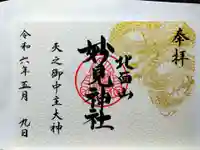 奉拝
北面山
妙見神社
天之御中主大神
令和六年五月 九日